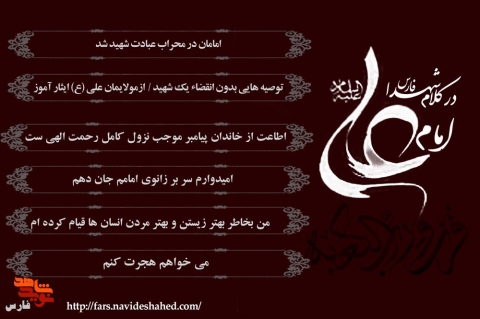 امام علی علیه السلام
در کلام شهدا فارس
امامان در محراب عبادت شهید شد
توصیه هایی بدون انقضاء یک شهید / ازمولایمان علی (ع) ایثار آموز
اطاعت از خاندان پیامبر موجب نزول کامل رحمت الهی ست
امیدوارم سر بر زانوی امامم جان دهم
من بخاطر بهتر زیستن و بهتر مردن انسان ها قیام کرده ام
می خواهم هجرت کنم
نوید شاهد
فارس
http://fars.navideshahed.com/